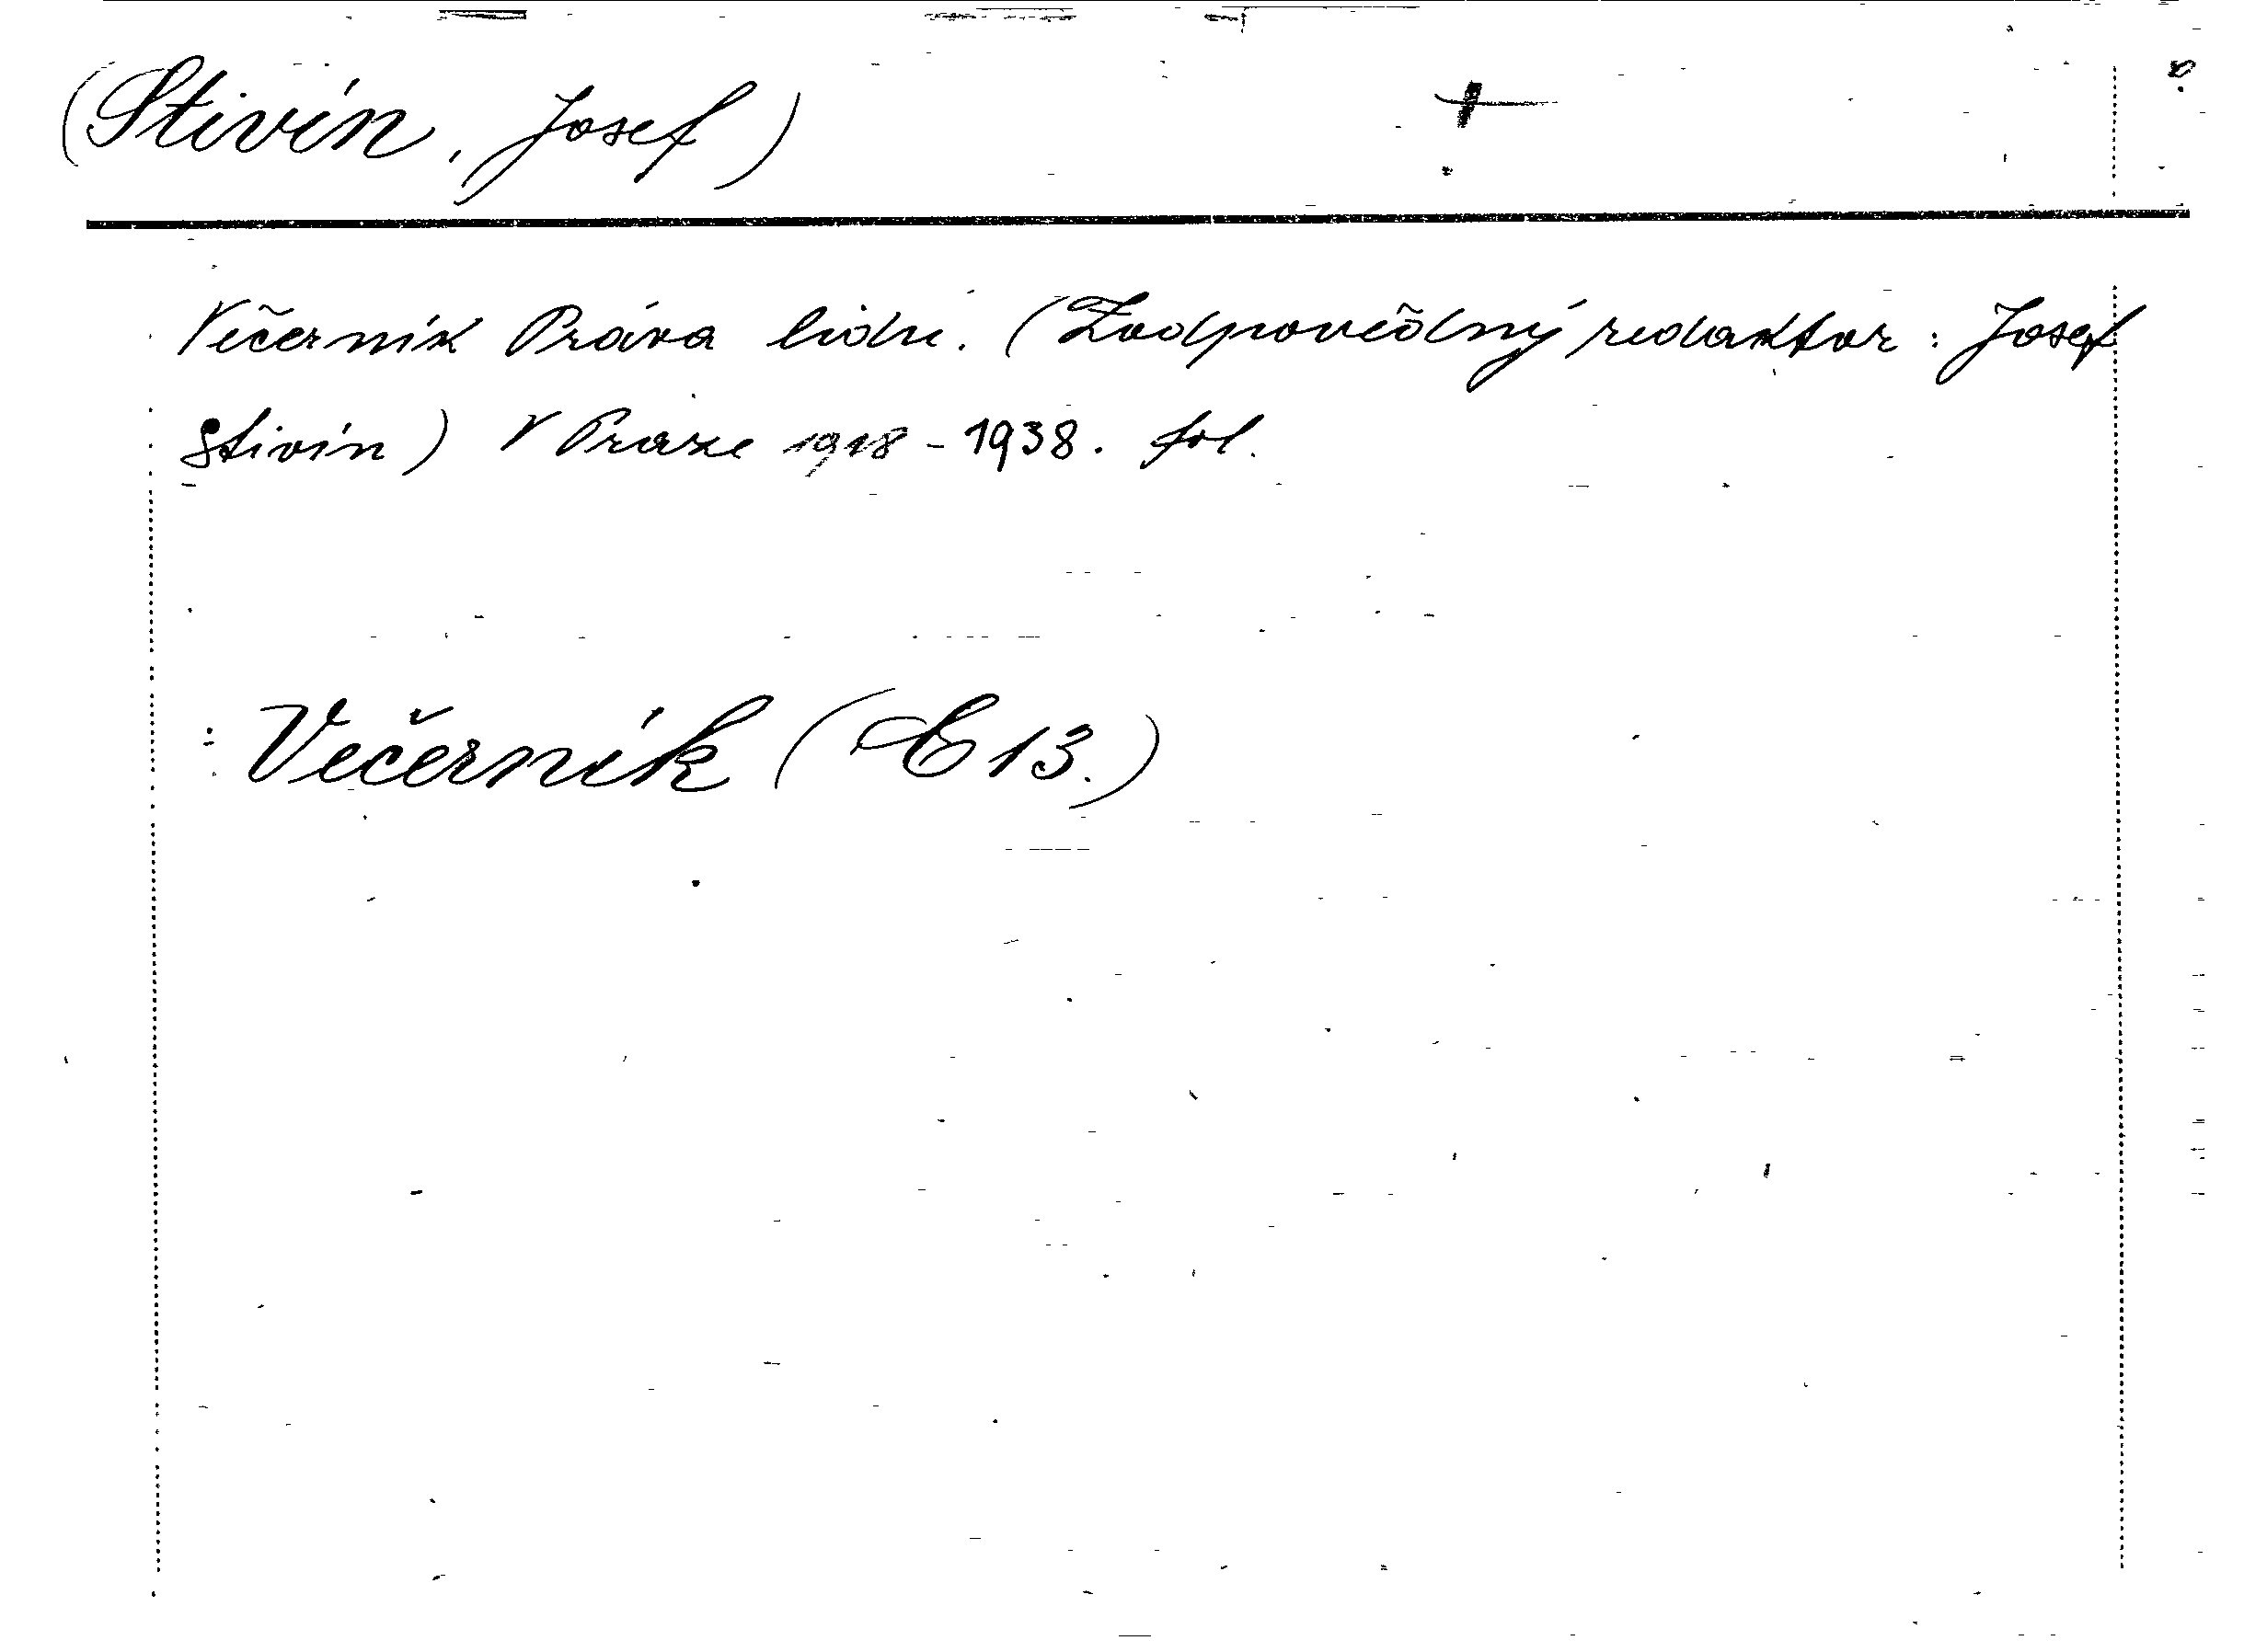 (Stivín, Josef) +
Večerník Práva lidu. (Zodpovědný redaktor: Josef
Stivín) V Praze 1918-1938. fol.
Večerník (E 13.)